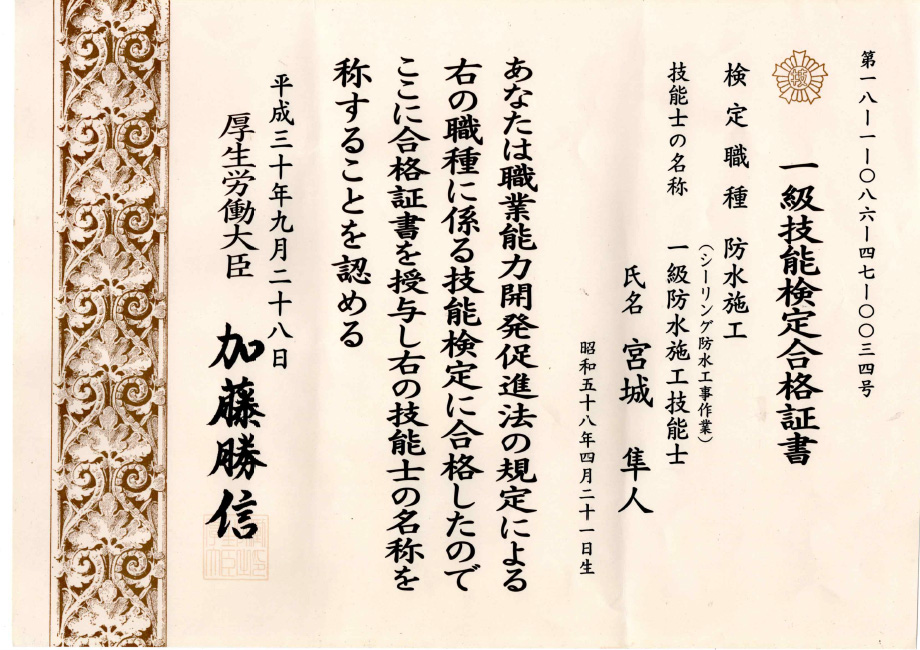 第一八ー一ー〇八六ー四七ー〇〇三四号
一級技能検定合格証書
検定職種 防水施工
(シーリング防水工事作業)
技能士の名称 一級防水施工技能士
氏名 宮城 隼人
昭和五十八年四月二十一日生
あなたは職業能力開発促進法の規定による
右の職種に係る技能検定に合格したので
ここに合格証書を授与し右の技能士の名称を
称することを認める
平成三十年九月二十八日
厚生労働大臣 加藤勝信